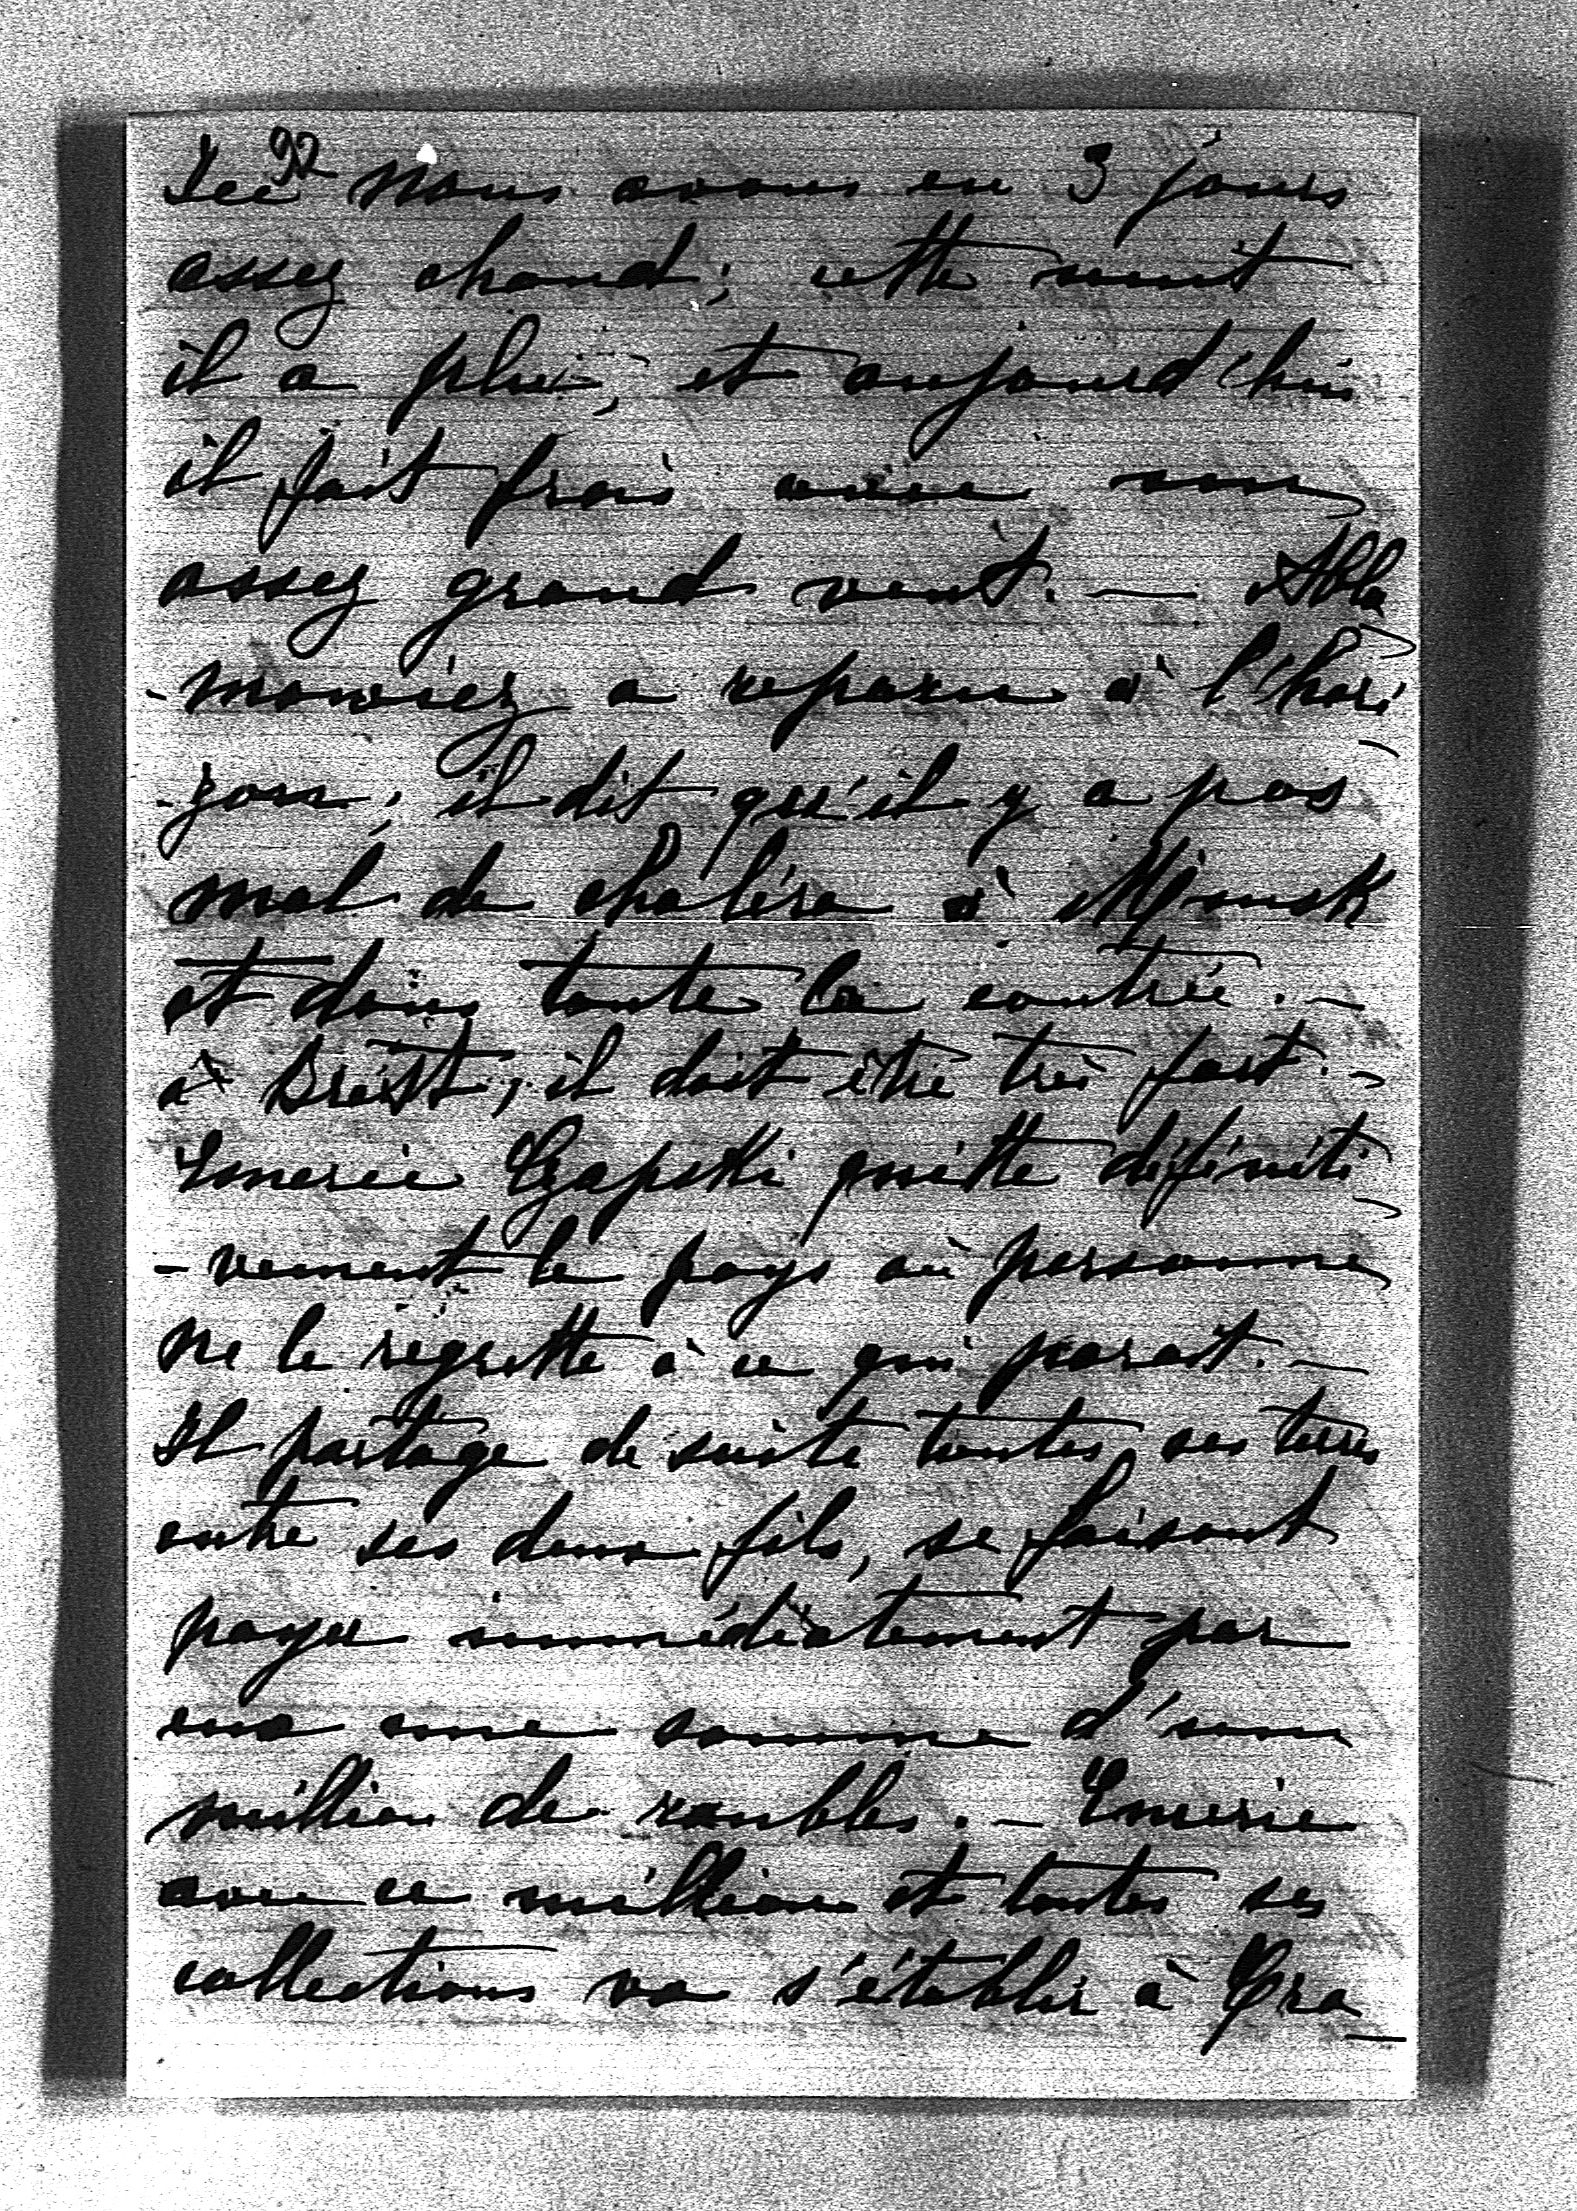 92
Ici nous avons eu 3 jours
assez chaud; cette nuit
il a plu, et aujourd'hui
il fait frais avec un
assez grand vent. — Abla
-mowicz a reparu à l'hori
-zon; il dit qu'il y a pas
mal de choléra à Minsk
et dans toute la contrée. —
à Brest, il doit être très fort. —
Emeric Czapski quitte définiti
-vement le pays où personne
ne le regrette à ce qui parait. —
Il partage de suite toutes ses terres
entre ses deux fils, se faisant
payer immédiatement par
eux une somme d'un
million de roubles. — Emeric
avec ce million et toutes ses
collections va s'établir à Cra_